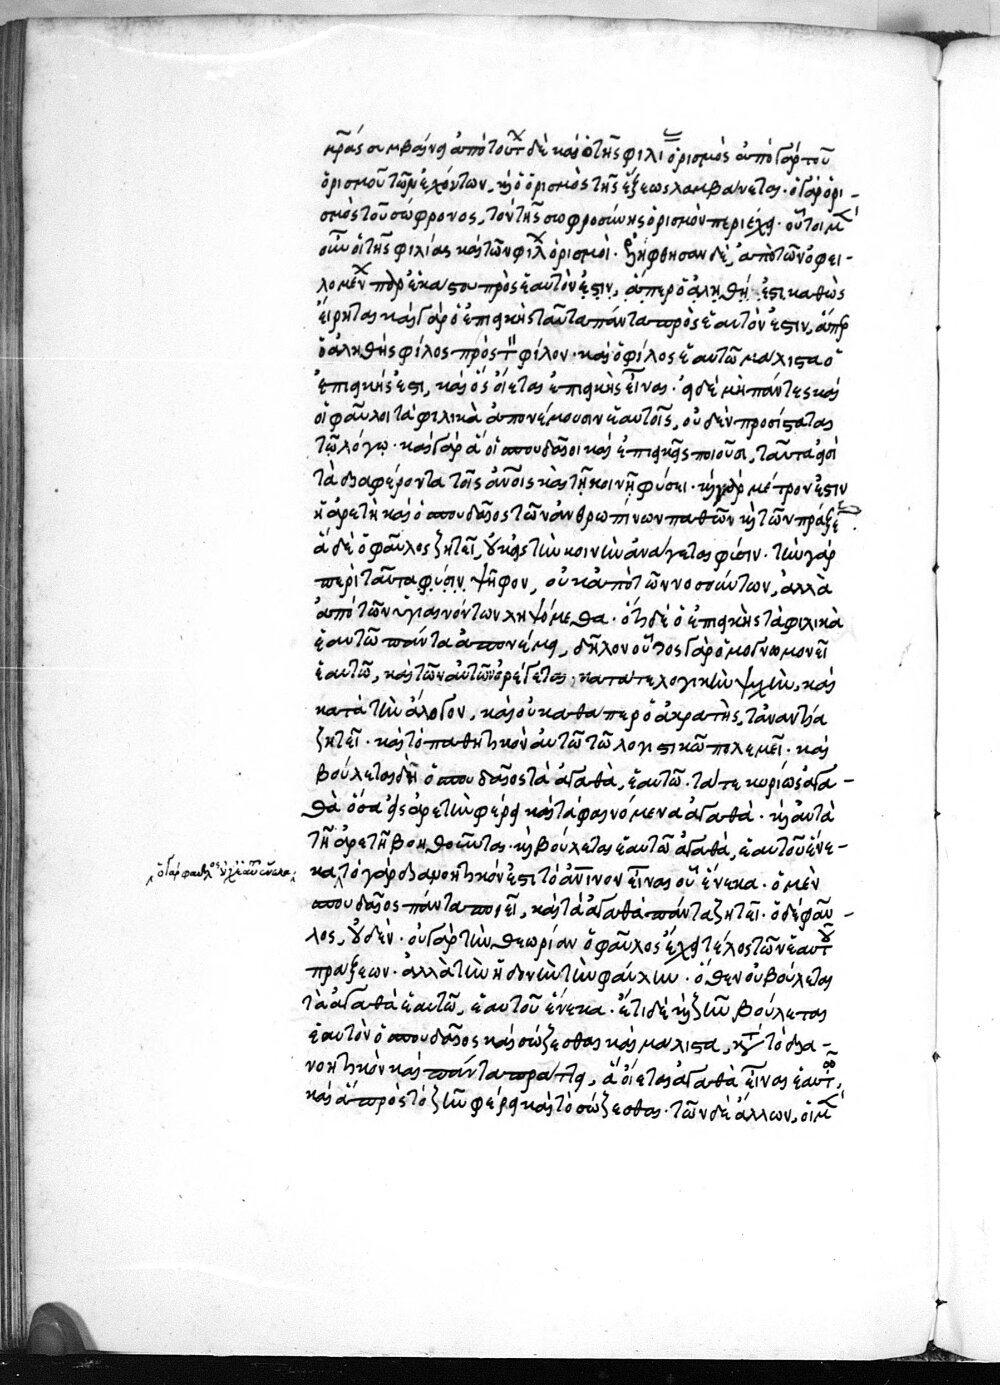 μρας συμβαίνει ἀπὸ τούτων δὲ καὶ ὁ τῆς φιλίας ὁρισμὸς ἀπὸ γὰρ τοῦ
ὁρισμοῦ τῶν ἐχόντων, καὶ ὁ ὁρισμὸς τῆς ἕξεως λαμβάνεται. ὁ γὰρ ὁρι-
σμὸς τοῦ σώφρονος, τὸν τῆς σωφροσύνης ὁρισμὸν περιέχει. οὗτοι μὲν
οὖν οἱ τῆς φιλίας καὶ τῶν φίλων ὁρισμοὶ. ἐλήφθησαν δὲ, ἀπὸ τῶν ὀφει-
λομένων παρ' ἑκάστου πρὸς ἑαυτὸν ἐστιν, ἅπερ ὁ ἀληθής ἐστι καθὼς
εἴρηται καὶ γὰρ ὁ ἐπιεικὴς ταῦτα πάντα πρὸς ἑαυτὸν ἐστιν, ἅπερ
ὁ ἀληθὴς φίλος πρὸς τὸν φίλον. καὶ ὁ φίλος ἑαυτῶ μάλιστα ὁ
ἐπιεικής ἐστι, καὶ ὃς οἴεται ἐπιεικὴς εἶναι. εἰ δὲ μὴ πάντες καὶ
οἱ φαῦλοι τὰ φιλικὰ ἀπονέμουσιν ἑαυτοῖς, οὐδὲν προσίσταται
τῶ λόγω. καὶ γὰρ ἃ οἱ σπουδαῖοι καὶ ἐπιεικεῖς ποιοῦσι, ταῦτα εἰσὶ
τὰ διαφέροντα τοῖς ἀνοις καὶ τῆ κοινῆ φύσει. καὶ γὰρ μέτρον ἐστιν
ἡ ἀρετὴ καὶ ὁ σπουδαῖος τῶν ἀνθρωπίνων παθῶν καὶ τῶν πράξεων.
ἃ δὲ ὁ φαῦλος ζητεῖ, οὐκ εἰς τὴν κοινὴν ἀνάγεται φύσιν. τὴν γὰρ
περὶ ταῦτα φύσιν ψῆφον, οὐκ ἀπὸ τῶν νοσούντων, ἀλλὰ
ἀπὸ τῶν ὑγιαινόντων ληψόμεθα. ὅτι δὲ ὁ ἐπιεικὴς τὰ φιλικὰ
ἑαυτῶ πάντα ἀπονέμει, δῆλον οὗτος γὰρ ὁμογνωμονεῖ
ἑαυτῶ, καὶ τῶν αὐτῶν ὀρέγεται. κατά τε λογικὴν ψυχὴν, καὶ
κατὰ τὴν ἄλογον, καὶ οὐ καθάπερ ὁ ἀκρατὴς, τἀναντία
ζητεῖ. καὶ τὸ παθητικὸν αὐτῶ τῶ λογιστικῶ πολεμεῖ. καὶ
βούλεται δὴ ὁ σπουδαῖος τὰ ἀγαθὰ, ἑαυτῶ. τά τε κυρίως ἀγα-
θὰ ὅσα εἰς ἀρετὴν φέρει καὶ τὰ φαινόμενα ἀγαθὰ. καὶ αὐτὰ
τῆ ἀρετῆ βοηθοῦντα. καὶ βούλεται ἑαυτῶ ἀγαθὰ, ἑαυτοῦ ἕνε-
κα, τὸ γὰρ διανοητικόν ἐστι τὸ ἀνινον εἶναι οὗ ἕνεκα. ὁ μὲν
σπουδαῖος πάντα ποιεῖ, καὶ τὰ ἀγαθὰ πάντα ζητεῖ. ὁ δὲ φαῦ-
λος, οὐδέν. οὐ γὰρ τὴν θεωρίαν ὁ φαῦλος ἔχει τέλος τῶν ἑαυτοῦ
πράξεων. ἀλλὰ τὴν ἡδονὴν τὴν φαύλην. ὅθεν οὐ βούλεται
τὰ ἀγαθὰ ἑαυτῶ, ἑαυτοῦ ἕνεκα. ἔτι δὲ καὶ ζῆν βούλεται
ἑαυτὸν ὁ σπουδαῖος καὶ σώζεσθαι καὶ μάλιστα, κατὰ τὸ δια-
νοητικὸν καὶ πάντα πράττει, ἃ οἴεται ἀγαθὰ εἶναι ἑαυτῶ,
καὶ ἃ πρὸς τὸ ζῆν φέρει καὶ τὸ σώζεσθαι. τῶν δὲ ἄλλων, οἱ μὲν
ὁ γὰρ φαῦλος οὐχ ἑαυτοῦ ἕνεκα